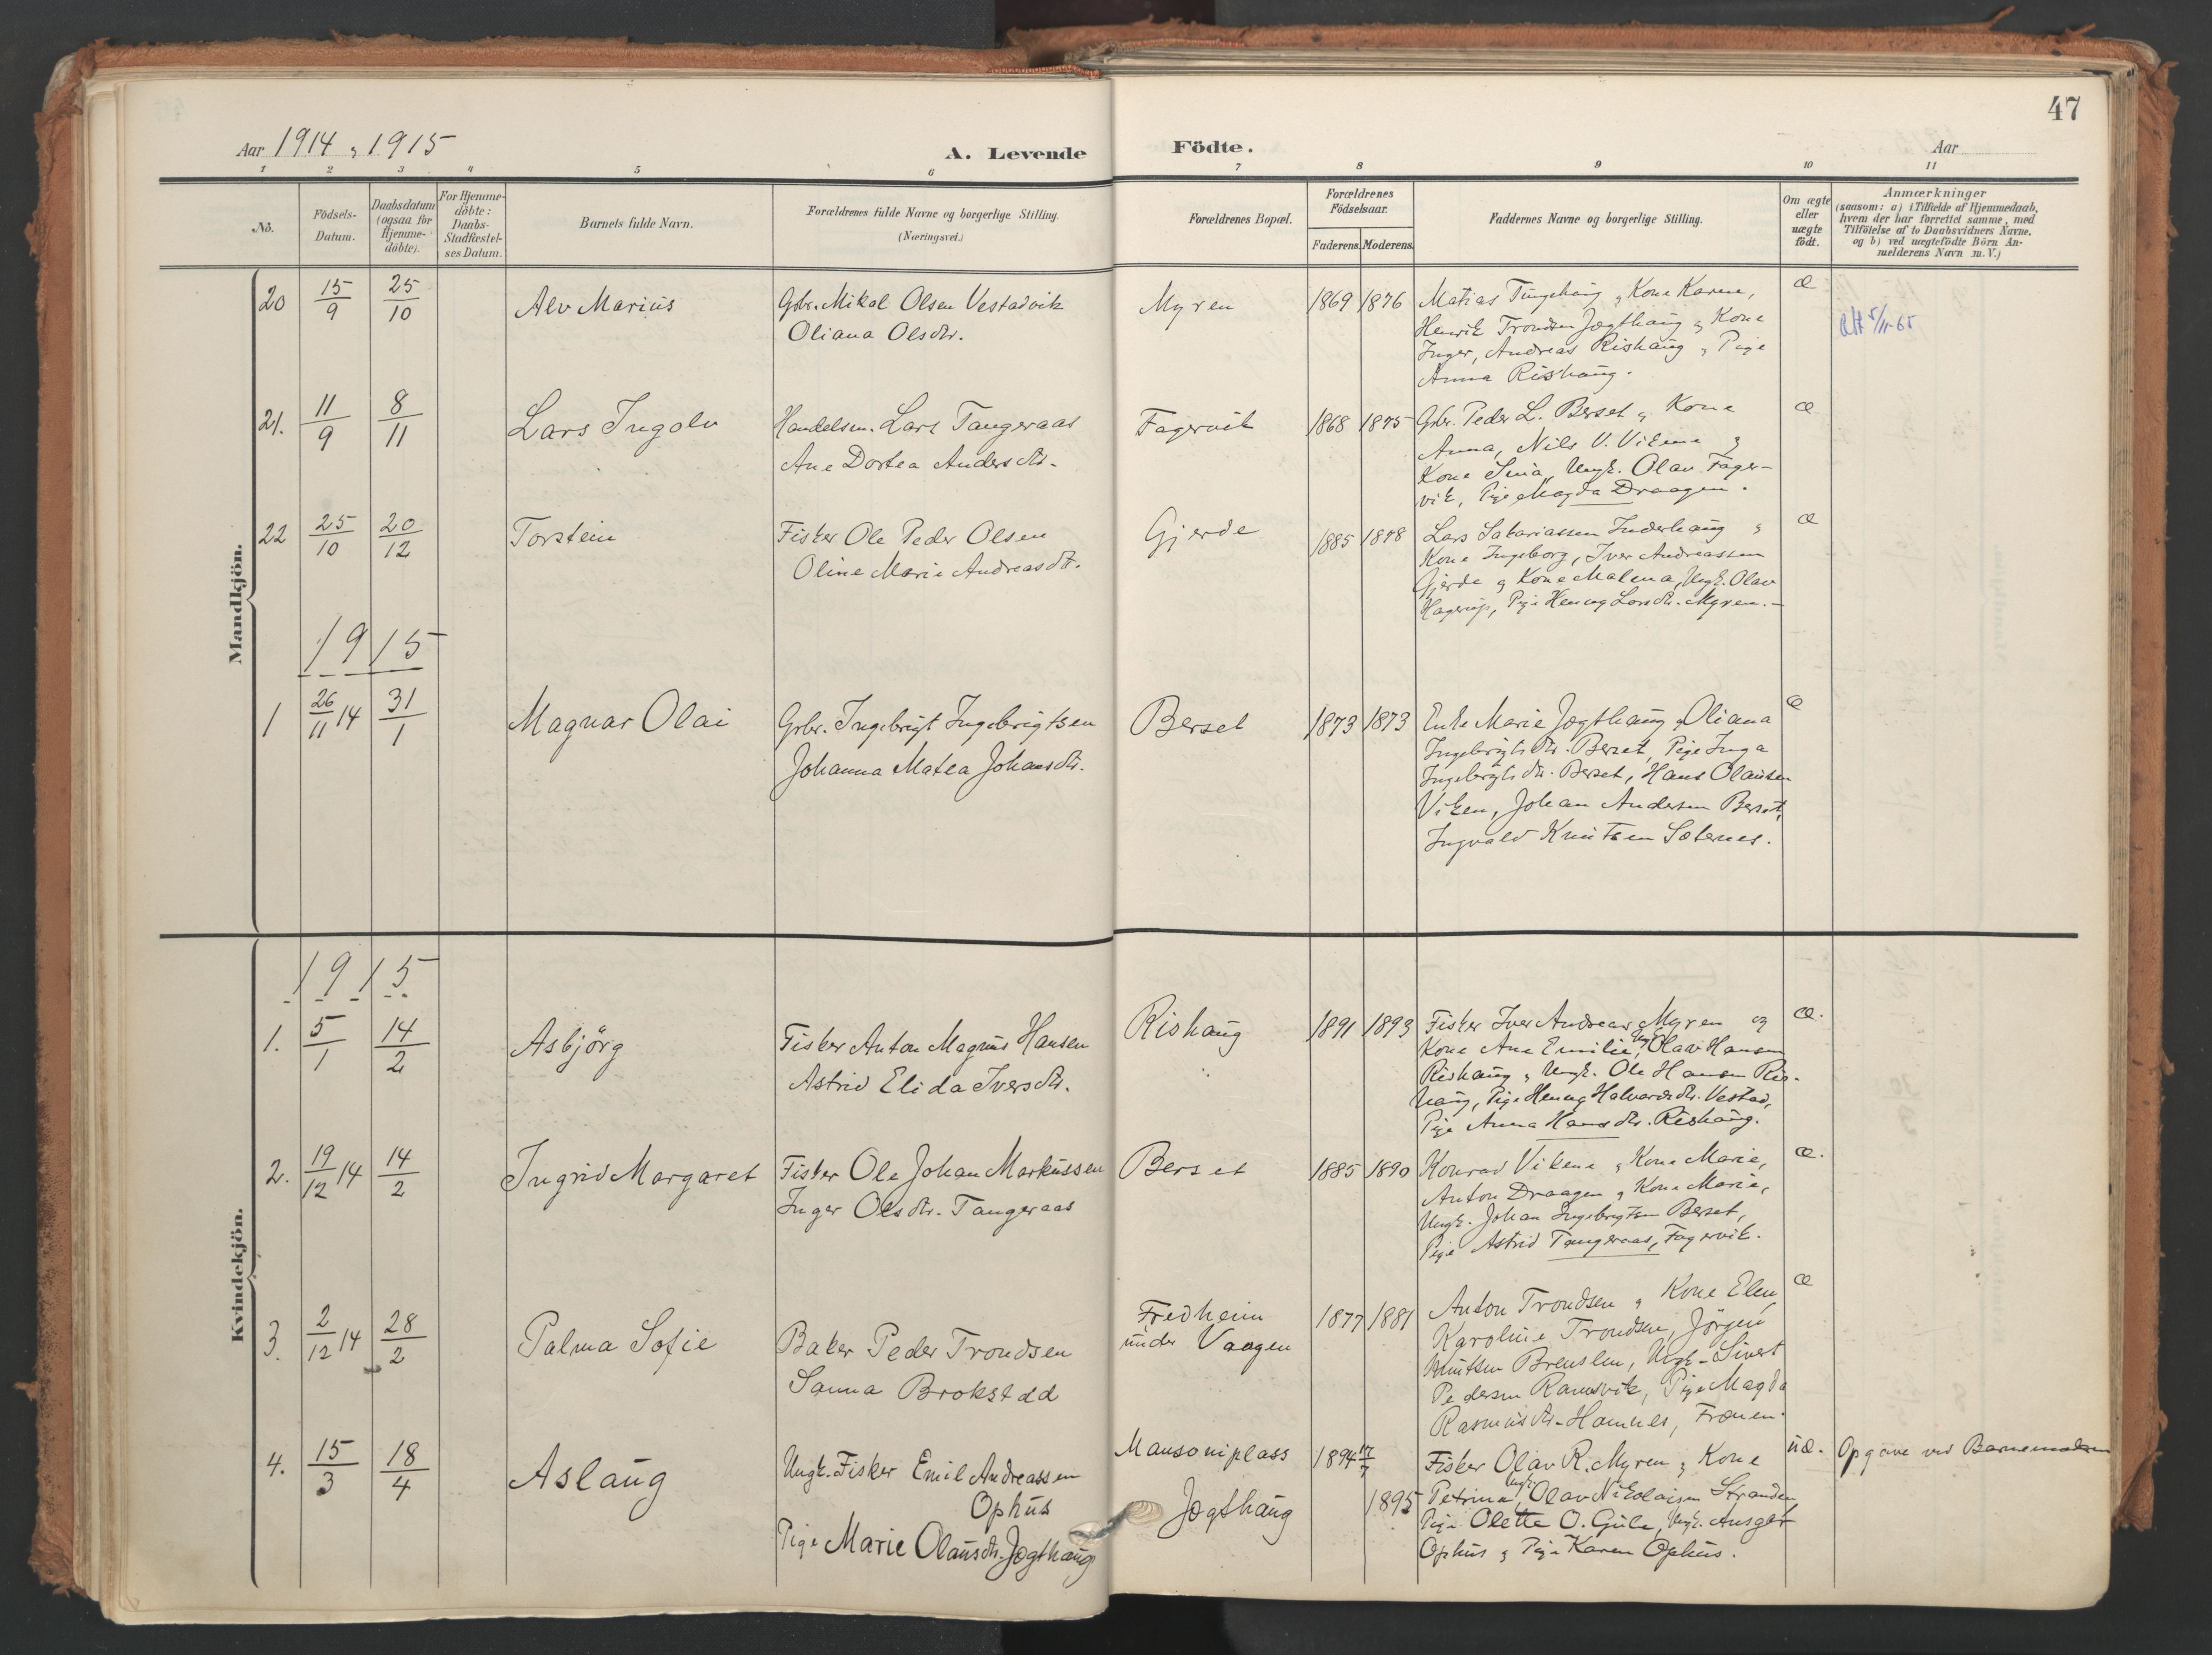 47
Aar 1914 & 1915
A. Levende
Födte.
Aar
1 2 3 4 5 6 7 8 9 10 11
No.
Födsels-
Datum.
Daabsdatum
(ogsaa for
Hjemme-
döbte).
For Hjemme-
döbte:
Daabs-
Stadfæstel-
ses Datum.
Barnets fulde Navn.
Forældrenes fulde Navne og borgerlige Stilling.
(Næringsvei.)
Forældrenes Bopæl.
Forældrenes
Födselsaar.
Faderens. Moderens.
Faddernes Navne og borgerlige Stilling.
Om ægte
eller
uægte
födt.
Anmærkninger
(saasom: a) i Tilfælde af Hjemmedaab,
hvem der har forrettet samme, med
Tilföielse af to Daabsvidners Navne,
og b) ved uægtefödte Börn An-
melderens Navn m. V.)
Mandkjön.
20 15/9 25/10 Alv Marius
Gbr. Mikal Olsen Vestadvik
Oliana Olsdtr.
Myren 1869 1876
Matias Tungehaug & Kone Karen,
Henrik Trondsen Jøgthaug & Kone
Inger, Andreas Rishaug & Pige
Anna Rishaug.
æ
5/11-65
21. 11/9 8/11 Lars Ingolv
Handelsm. Lars Tangeraas
Ane Dortea Andersdtr.
Fagervik 1868 1875
Gbr. Peder L. Berset & Kone
Anna, Nils V. Vikene &
Kone Sina, Ungk. Olav Fager-
vik, Pige Magda Draagen.
æ
22 25/10 20/12 Torstein
Fisker Ole Peder Olsen
Oline Marie Andreasdtr.
Gjerde 1885 1878
Lars Sakariassen Inderhaug &
Kone Ingeborg, Iver Andreassen
Gjerde & Kone Malena, Ungk. Olav
Hagerup, Pige Henny Larsdtr. Myren.-
æ
1915
1 26/11 14 31/1 Magnar Olai
Grbr. Ingebrigt Ingebrigtsen
Johanna Matea Johansdtr.
Berset 1873 1873
Enke Marie Jøgthaug, Oliana
Ingebrigtsdtr. Berset, Pige Inga
Ingebrigtsdtr. Berset, Hans Olausen
Viken, Johan Andersen Berset,
Ingvald Knutsen Sæternes.
æ
Kvindekjön.
1915
1. 5/1 14/2 Asbjörg
Fisker Anton Magnus Hansen
Astrid Elida Iversdtr.
Rishaug 1891 1893
Fisker Iver Andreas Myren og
Kone Ane Emilie, Ungk. Olav Hansen
Rishaug & Ungk. Ole Hansen Ris-
haug, Pige Henny Halvorsdtr. Vestad,
Pige Anna Hansdtr. Rishaug.
æ.
2. 19/12 14 14/2 Ingrid Margaret
Fisker Ole Johan Markussen
Inger Olsdtr. Tangeraas
Berset 1885 1890
Konrad Vikene & Kone Marie,
Anton Draagen & Kone Marie,
Ungk. Johan Ingebrigtsen Berset,
Pige Astrid Tangeraas, Fagervik.
æ.
3. 2/12 14 28/2 Palma Sofie
Baker Peder Trondsen
Sanna Brokstad
Fredheim
under Vaagen
1877 1881
Anton Trondsen & Kone Elen,
Karoline Trondsen, Jörgen
Knutsen Breuslen, Ungk. Sivert
Pedersen Ramsvik, Pige Magda
Rasmusdtr. Hammer, Frænen.
æ
4. 15/3 18/4 Aslaug
Ungk. Fisker Emil Andreassen
Ophus
Pige Marie Olausdtr. Jøgthaug
Mausoniplass
Jøgthaug
1894 17/7
1895
Fisker Olav R. Myren & Kone
Petrina, Ungk. Olav Nikolaisen Stranden
Pige Olette O. Gule, Ungk. Ansgar
Ophus & Pige Karen Ophus.
uæ.
Opgave ved Barnemoderen